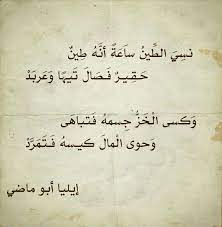 نسي الطينُ ساعةً أنَّهُ طينٌ
حقيرٌ فصَالَ تَيهَا وَعَربَدَ
وَكسى الخَزُّ جِسمهُ فَتباهَى
وَحوى المالَ كيسهُ فَتَمَرَّدَ
إيليا أبو ماضي